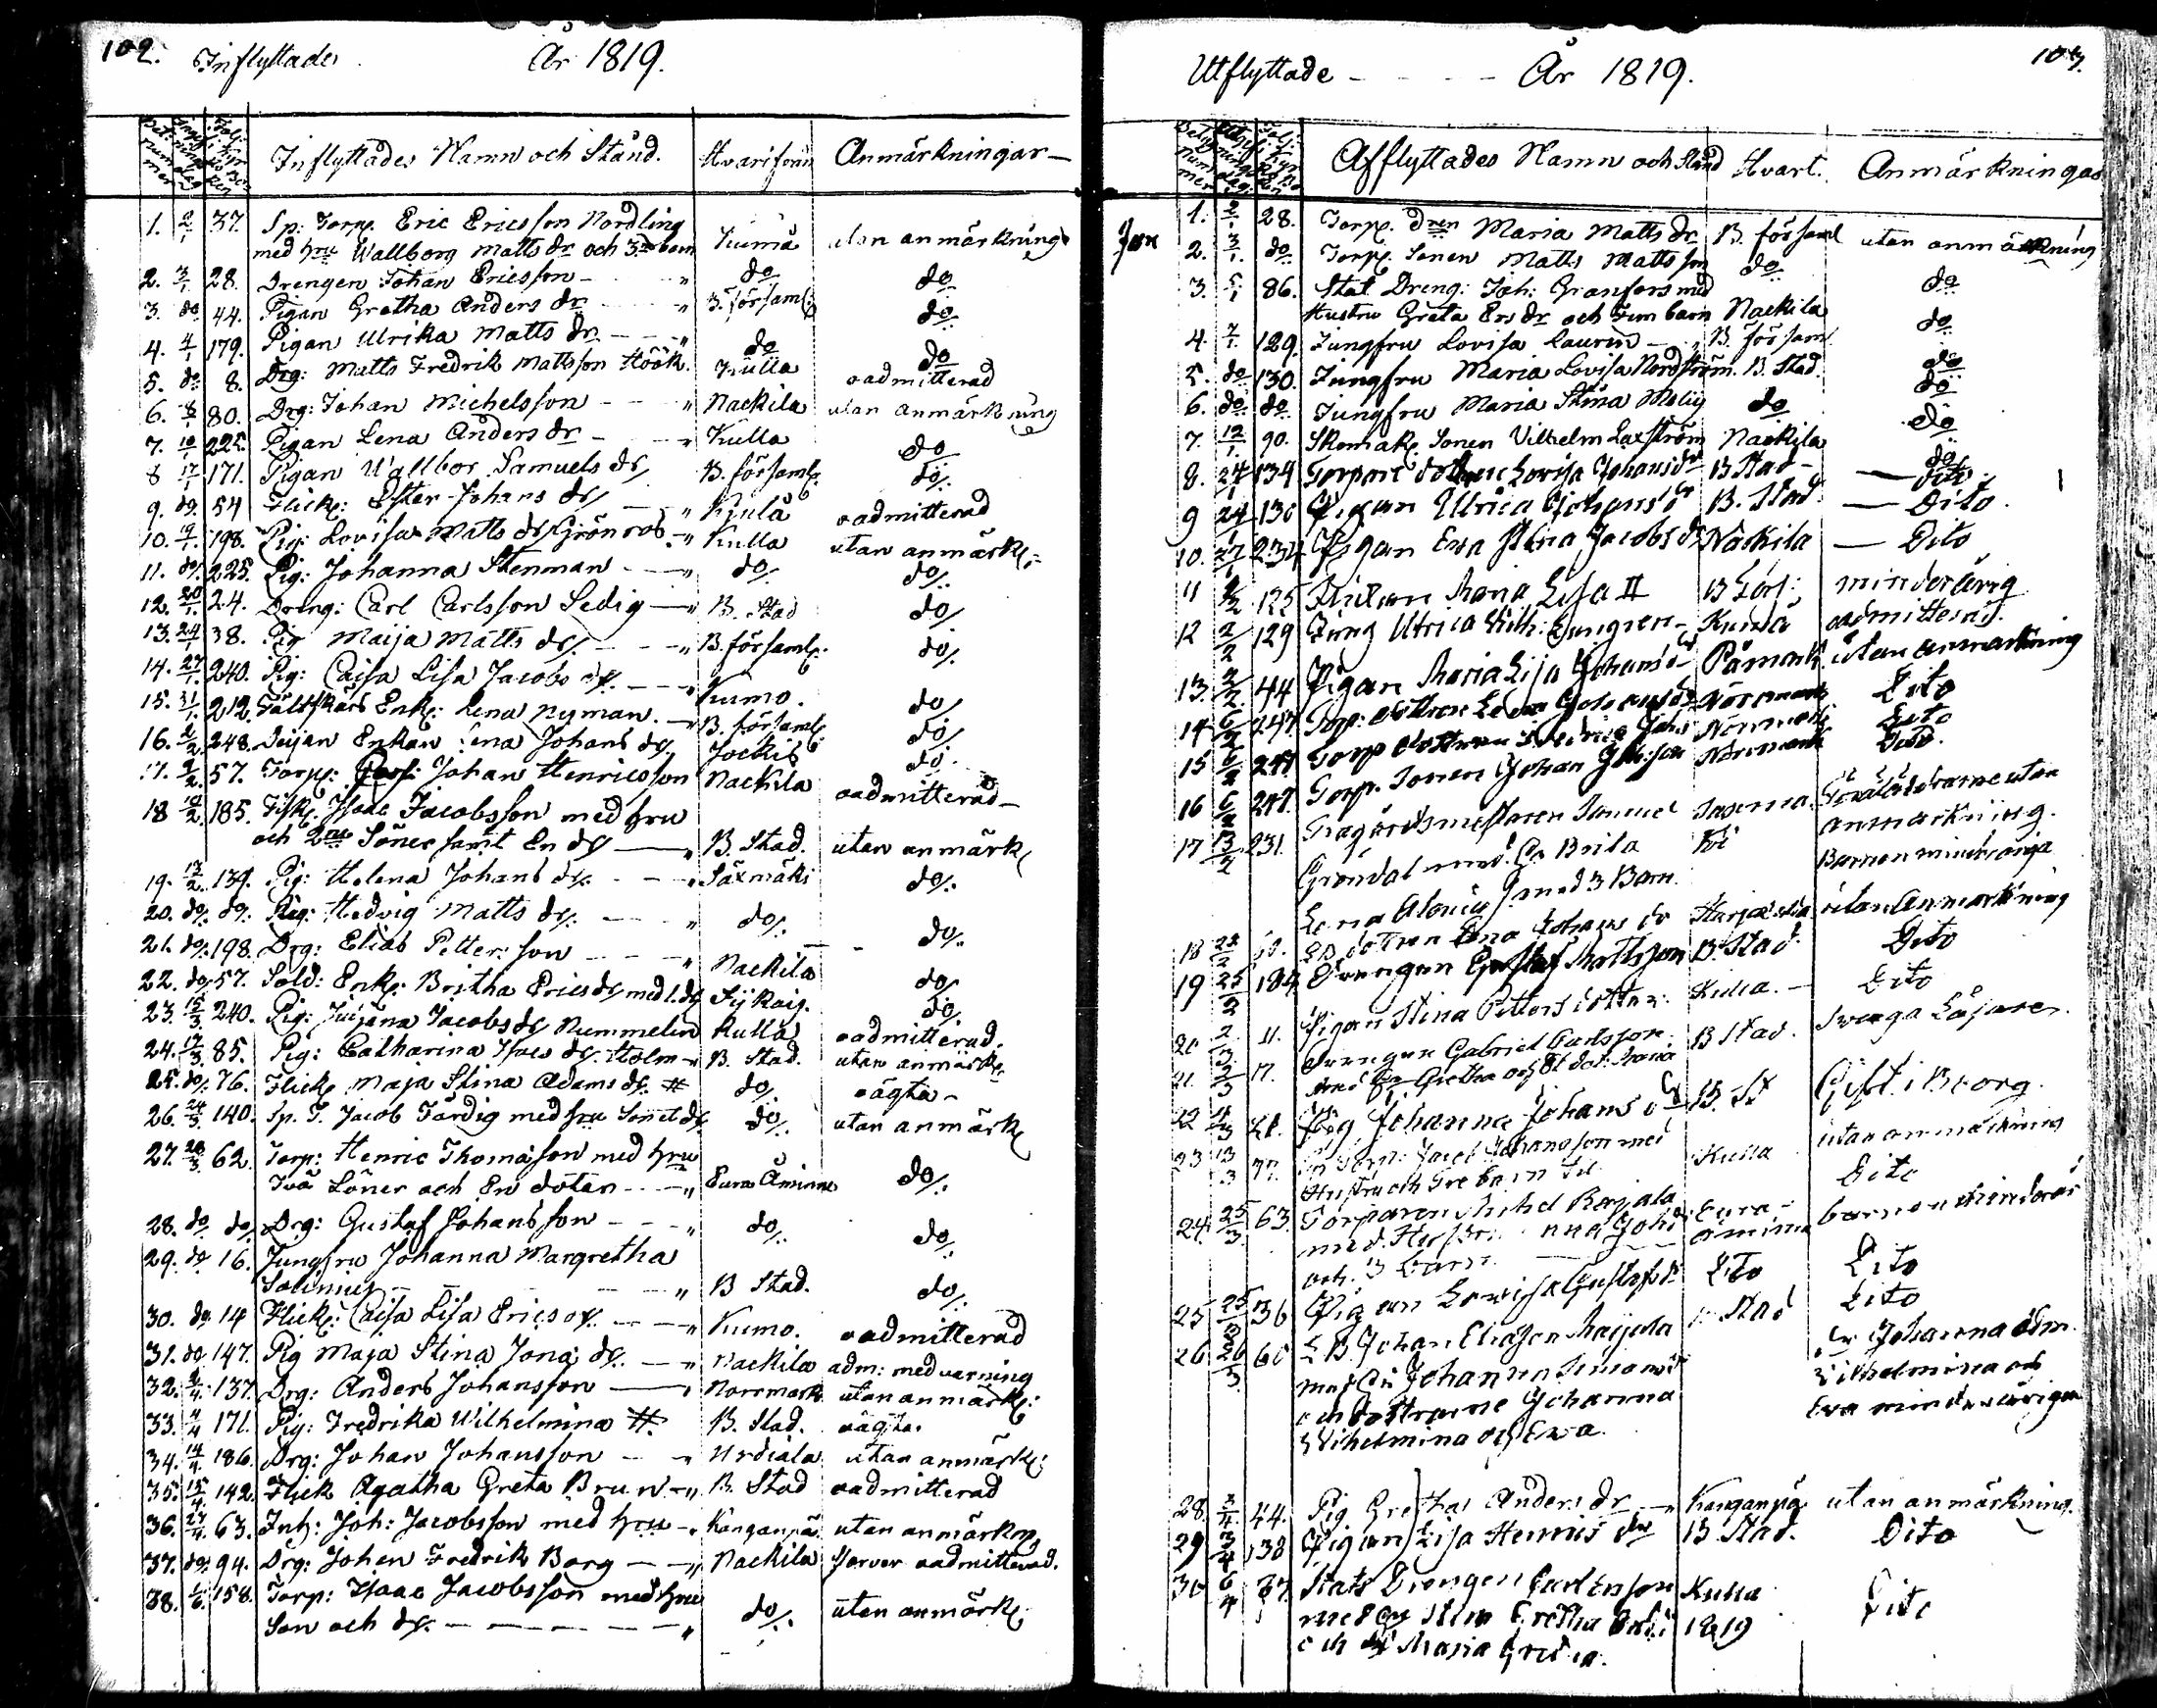 102. Inflyttade År 1819.
Inflyttades Namn och Stånd. Hvarifrån Anmärkningar
1. 2/1 37. Sp: Torp. Eric Ericsson Nordling
med hru Wallborg Matts dr och 3ne barn Kiumå utan anmärkning
2. 3/1 28. Drengen Johan Ericsson - - " do do
3. do 44. Pigan Gretha Anders dr - - " B. församl: do
4. 4/1 179. Pigan Ulrika Matts dr - - " do do
5. do 8. Drg: Matts Fredrik Mattsson Höök. Kulla oadmitterad
6. 8/1 80. Drg: Johan Michelsson - - " Nackila utan anmärkning
7. 10/1 225. Pigan Lena Anders dr - - " Kulla do
8 17/1 171. Pigan Wallbor Samuels dr B. församl: do/.
9. do. 54 Flick: Ester Johans dr - " Kjula oadmitterad
10. 19/1. 198. Pig: Lovisa Matts dr Grönroos - " Kulla utan anmärk:
11. do/. 225. Pig: Johanna Stenman - - " do/. do/.
12. 20/1. 24. Dreng: Carl Carlsson Ledig - " B. Stad do/
13. 24/1 38. Pig Maija Matts dr/. - - " B. församl: do/.
14. 27/1. 240. Pig: Caisa Lisa Jacobs dr. - - " Kumo. do/
15. 31/1. 212. Fältskärs Enk: Lena Nyman. - " B. församl: do/
16. 2/2. 248. Enkan Johans dr. Jockis do.
17. 2/2. 57. Torp: Johan Henricsson Nackila oadmitterad -
18 10/2. 185. Isaac Jacobsson med hru
och 2ne Söner samt En dr - " B. Stad. utan anmärk
19. 13/2. 139. Pig: Helena Johans dr. - - " Säxmäki do/.
20. do/. do/. Pig: Hedvig Matts dr/. - - " do/. do/.
21. do/. 198. Drg: Elias Petterson - - " Nackila do/
22. do/. 57. Sold: Enk: Britha Erics dr med 1. dr do
23. 15/3. 240. Pig: Jacobs dr Nummelin Kulla oadmitterad.
24. 17/3. 85. Pig: Catharina Isacs dr. Holm - " B. Stad. utan anmärk
25. do/. 76. Flick Maja Stina Adams dr. # do/. oägta -
26. 24/3. 140. Sp. T. Jacob Färdig med hru Son et dr. do/. utan anmärk
27. 28/3. 62. Torp: Henric Thomasson med hru
Två Söner och En dotter - - " Eura Åminne do/.
28. do/. do/. Drg: Gustaf Johansson - - " do/. do/.
29. do 16. Jungfru Johanna Margretha
- - " B Stad. do/.
30. do. 14 Flick: Caisa Lisa Erics dr. - - " Kumo. oadmitterad
31. do. 147. Pig Maja Stina Jonæ dr. - - " Nackila adm: med varning
32. 2/4. 137. Drg: Anders Johansson - " Norrmark utan anmärk:
33. 4/4 171. Pig: Fredrika Wilhelmina #. B. Stad. oägta.
34. 14/4. 186. Drg: Johan Johansson - - " Urdiala utan anmärk:
35. 15/4. 142. Flick Agatha Greta Brun - " B. Stad oadmitterad
36. 27/4. 63. Inh: Joh: Jacobsson med hru - " Kanganpä utan anmärkng
37. do/. 94. Drg: Johan Fredrik Borg - - " Nackila oadmitterad.
38. 158. Torp: Isaac Jacobsson med hru
Son och dr. - - - - " do/. utan anmärk:
Utflyttade - - - År 1819. 103.
Afflyttades Namn och Stånd Hvart. Anmärkningar
1. 2/1 28. Torp. dren Maria Matts dr B. församl utan anmärkning
2. 3/1. do. Torp. Sonen Matts Mattsson do do
3. 5/1 86. Stat. Dreng: Joh: Granfors med
Hustru Greta Ers dr och Fem barn Nackila do
4. 7/1. 129. Jungfru Lovisa Laurin - " B. församl. do
5. do 130. Jungfru Maria Lovisa Nordström. B. Stad. do
6. do. do. Jungfru Maria Stina do do
7. 12/1. 90. Skomak. Sonen Vilhelm Laxström Nackila do
8. 24/1 134 Torpare dottren Lovisa Johans dr B Stad - - Dito
9 24/1 130 Pigan Ulrica Johans dr B. Stad - Dito.
10. 27/1 234 Pigan Eva Stina Jacobs dr Nackila - Dito
11 2/2 125 Flickan Maria Lisa # B förs: minderårig
12 2/2 129 Jung Ulrica Kumå oadmitterad.
13. 2/2. 44 Pigan Maria Lisa Johans dr Påmark utan anmärkning
14 6/2 247 Torp: dottren Lena Johans dr Norrmark Dito
15 6/2 247 Torp dottren Fredrica Johans Norrmark Dito
16 6/2 247. Torp. Sonen Johan Johsson Norrmark Dito.
17 13/2 231. Trägårdsmästaren Samuel utan
Gröndal med Brita anmärkning.
Lena med 3 Barn. Barnen minderåriga
18 22/2 dottren Lena Johans dr utan Anmärkning
19 25/2 184 Drengen Gustaf Mattsson B. Stad Dito
20 2/3 11. Pigan Stina Petters dotter. Kulla. - Dito
21. 2/3 17. Drengen Gabriel Carlsson B Stad. Svaga Läsare.
med Gretha och dot. Maria
22 4/3 Pig Johanna Johans dr B. St Gift i Bborg.
23 13/3 77. Torp: Jacob Johansson med Kulla utan anmärkning
Hustru och Tre barn Dito
24. 25/3. 63. Torparen Michel Rajala Eura-
med Joh: åminne barnen minderår
och 3 barn.
25 25/3 36 Pigan Lovisa Gustafs dr Dito Dito
26 26/3. 60 Johan Eliasson Maijala Stad Dito
med Johanna Simons dr Johanna adm.
och döttrarne Johanna Vilhelmina och
Wilhelmina och Eva. Eva minderåriga
28. 3/4 44. Pig Grethas Anders dr - " Kanganpä utan anmärkning.
29 3/4 138 Pigan Lisa Henrics dr B Stad. Dito
30 6/4 37. Stats Drengen Carl Ersson Kulla
med Gretha 1819 Dito
och Maria Greta.